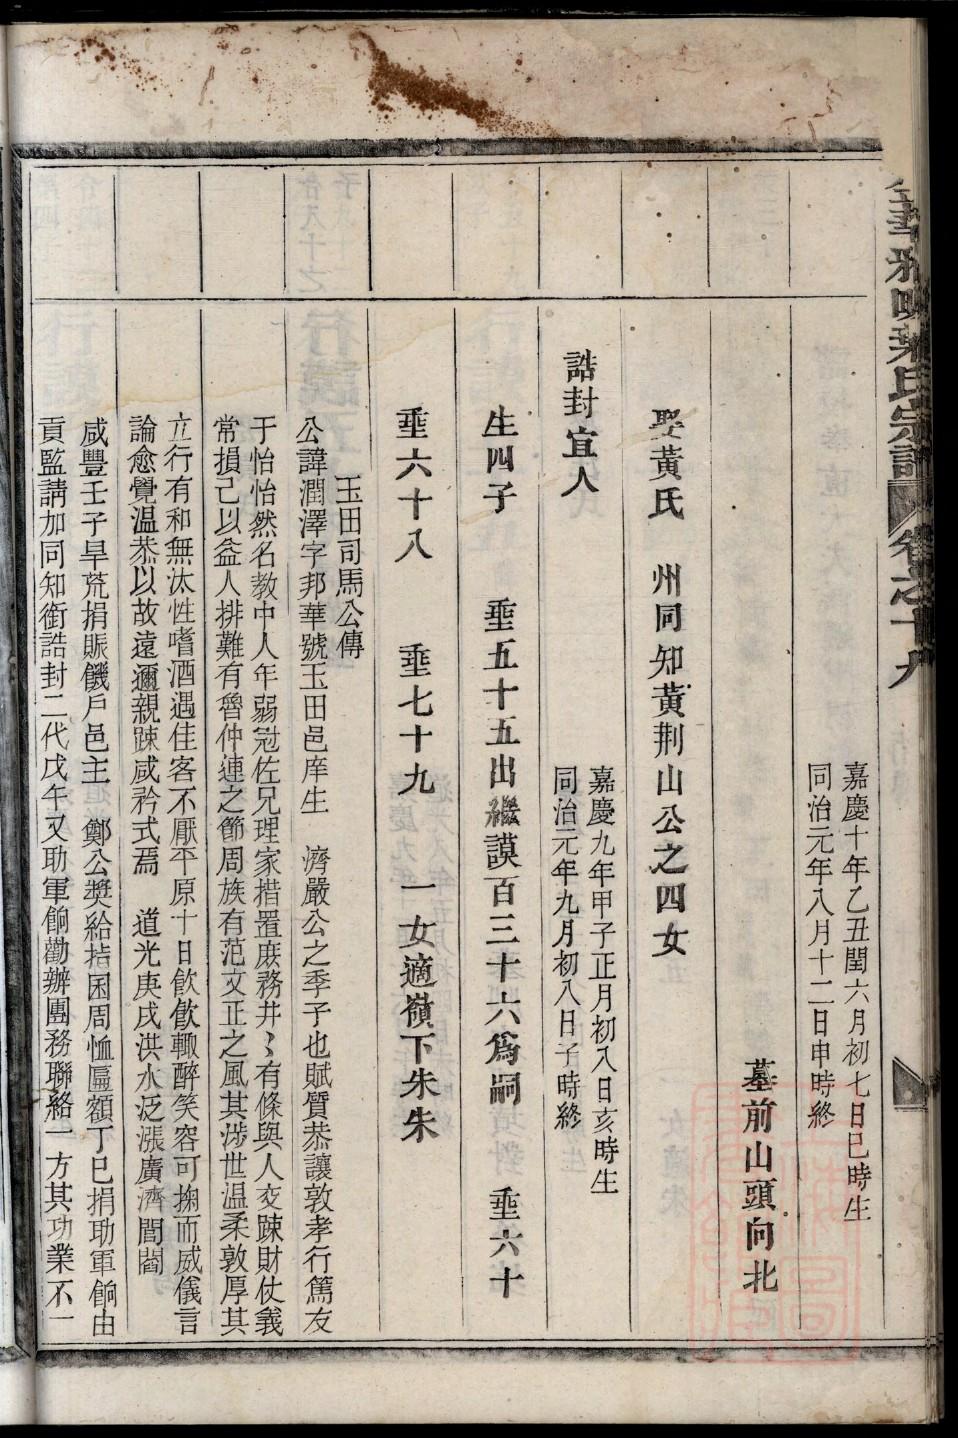 華 葉氏宗譜 卷之十九
嘉慶十年乙丑閏六月初七日巳時生
同治元年八月十二日申時終
墓前山頭向北
娶黃氏 州同知黃荆山公之四女
嘉慶九年甲子正月初八日亥時生
同治元年九月初八日子時終
誥封宜人
生四子 垂五十五出繼謨百三十六爲嗣 垂六十
垂六十八 垂七十九 一女適嶺下朱朱
玉田司馬公傳
公諱潤澤字邦華號玉田邑庠生 濟嚴公之季子也賦質恭讓敦孝行篤友
于怡怡然名教中人年弱冠佐兄理家措置庶務井〻有條與人交踈財仗義
常損己以益人排難有魯仲連之節周族有范文正之風其涉世温柔敦厚其
立行有和無汰性嗜酒遇佳客不厭平原十日飲飲輙醉笑容可掬而威儀言
論愈覺温恭以故遠邇親踈咸矜式焉 道光庚戌洪水泛漲廣濟閭閻
咸豐壬子旱荒捐賑饑戶邑主 鄭公獎給拮囷周恤匾額丁巳捐助軍餉由
貢監請加同知銜誥封二代戊午又助軍餉勸辦團務聯絡一方其功業不一